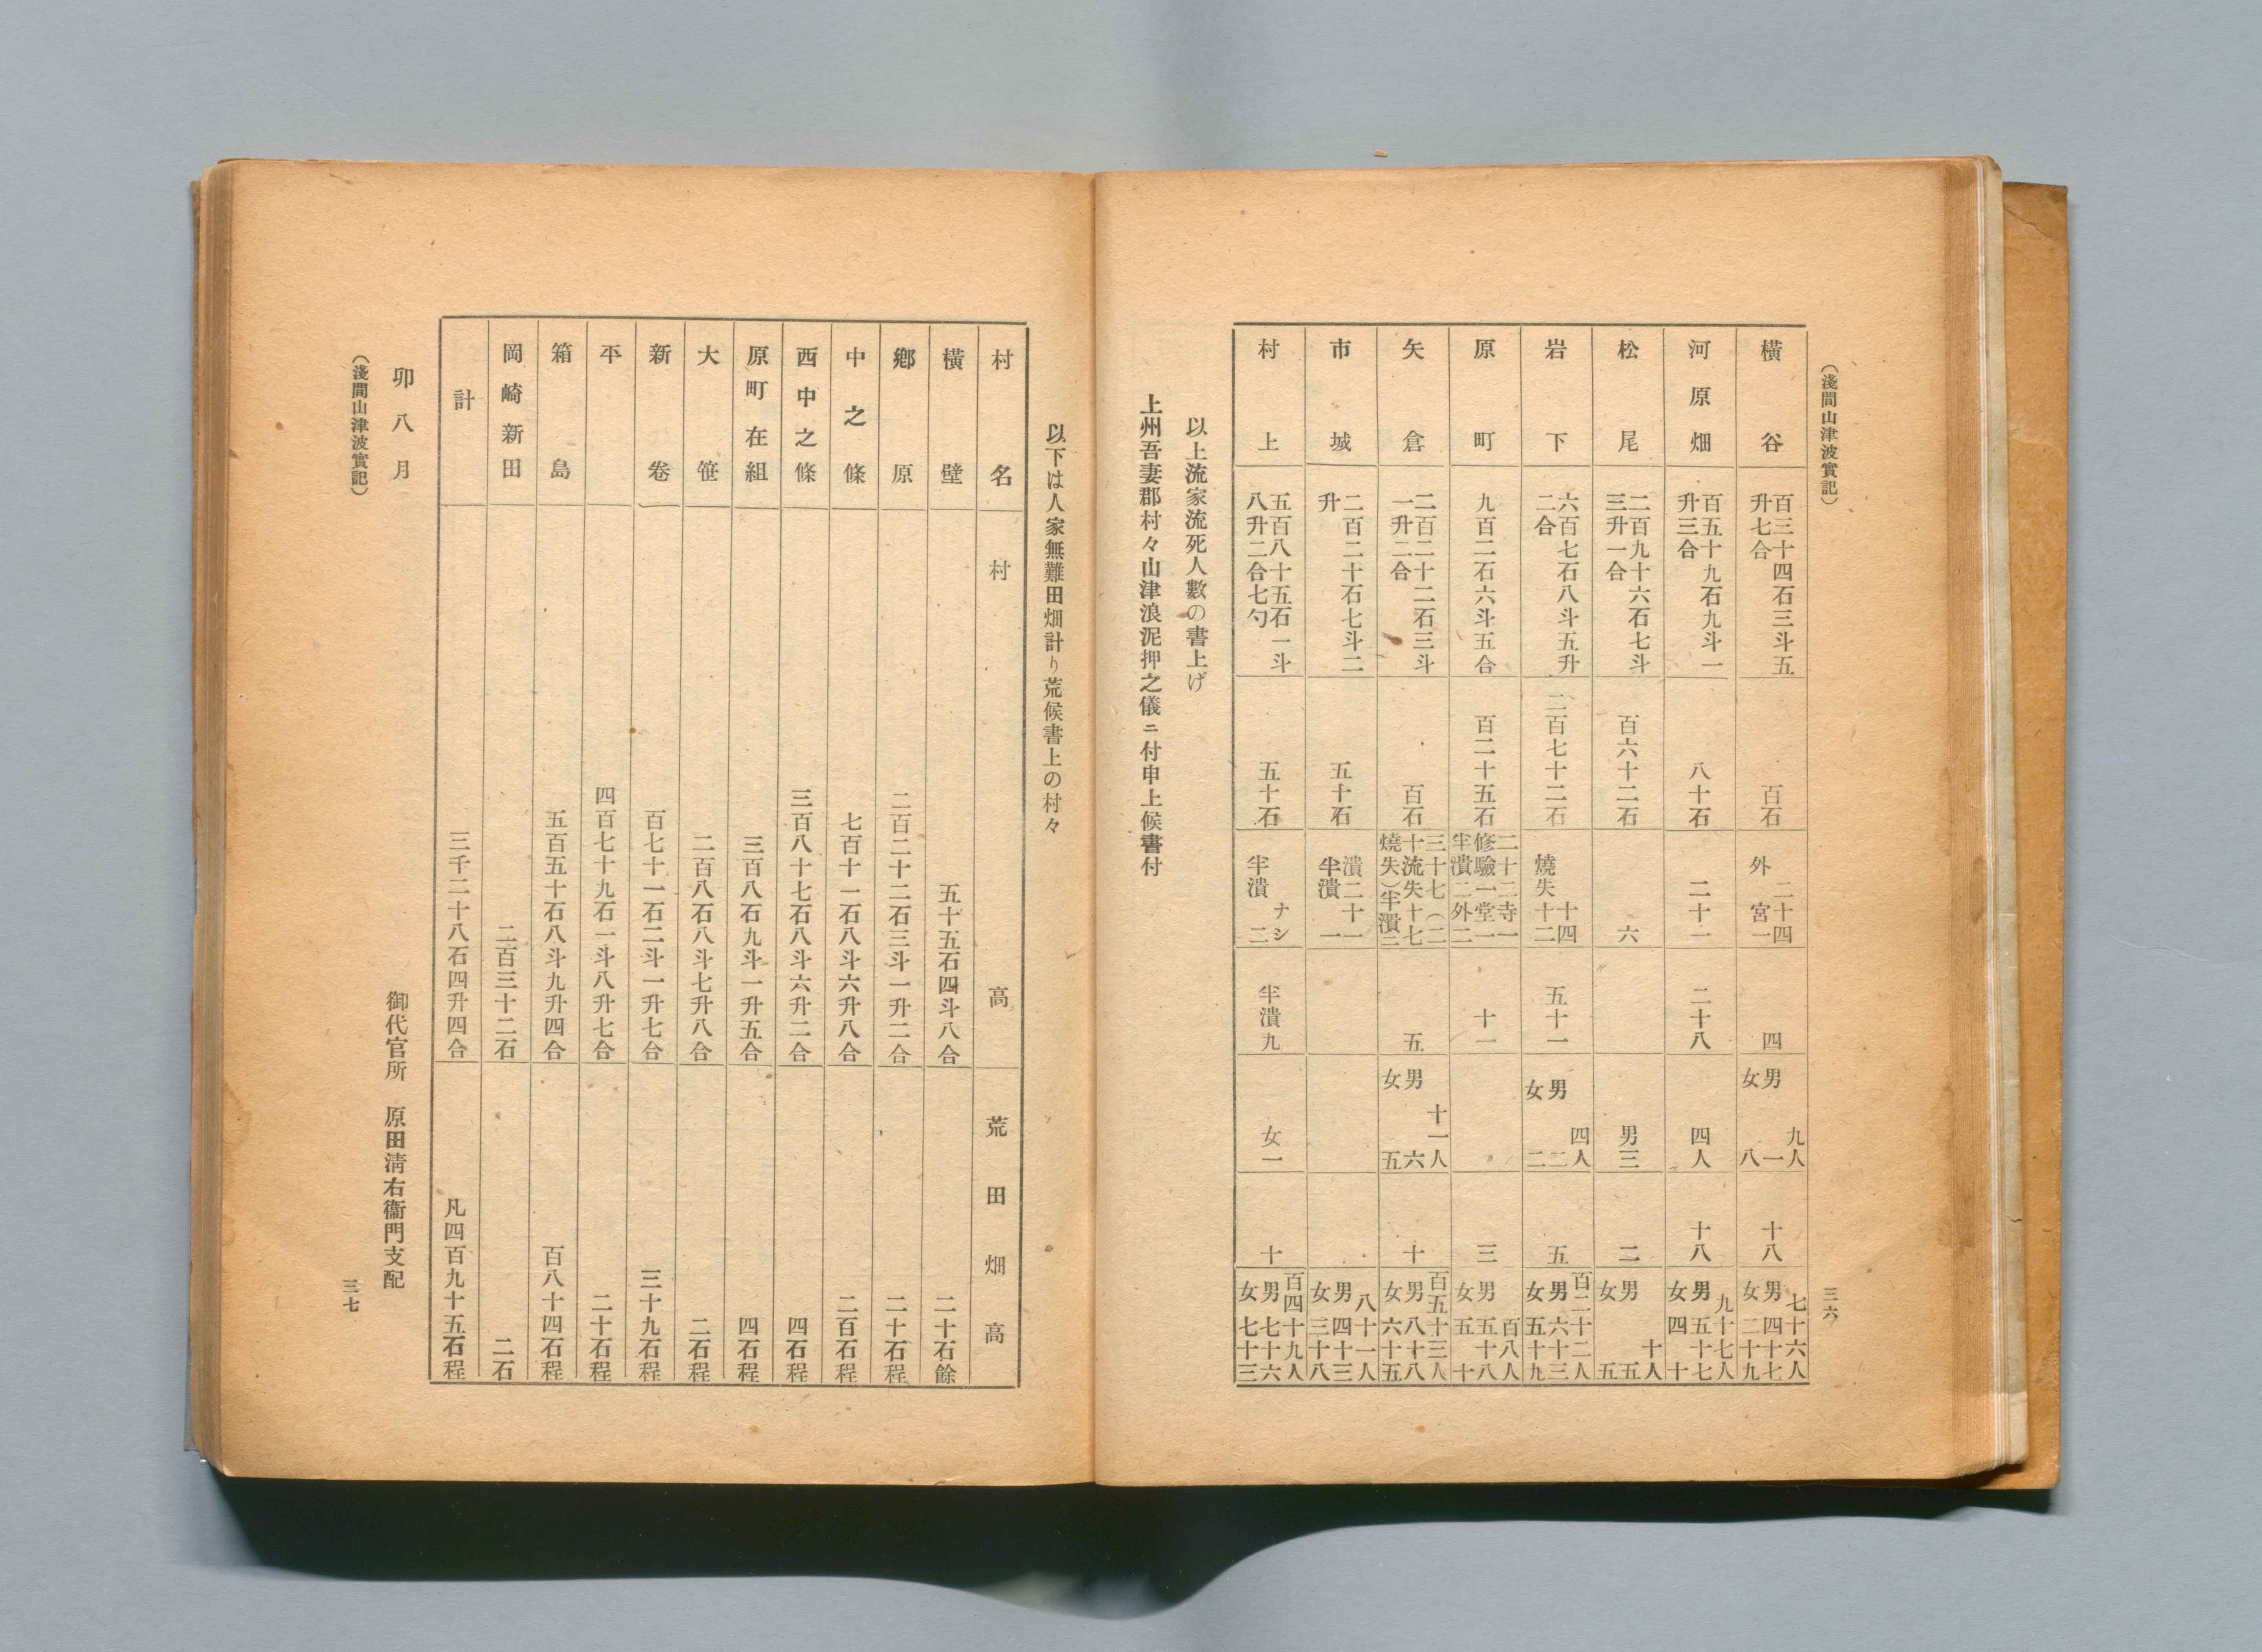 （淺間山津波實記）
三六
橫谷
百三十四石三斗五
升七合
百石
二十四
外宮一
四
九人
男一
女八
十八
七十六人
男四十七
女二十九
河原畑
百五十九石九斗一
升三合
八十石
二十一
二十八
四人
十八
九十七人
男五十七
女四十
松尾
二百九十六石七斗
三升一合
百六十二石
六
男三
二
十人
男五
女五
岩下
六百七石八斗五升
二合
二百七十二石
十四
燒失十二
五十一
四人
男二
女二
五
百二十二人
男六十三
女五十九
原町
九百二石六斗五合
百二十五石
二十二寺一
修驗一堂一
半潰二外二
十一
三
百八人
男五十八
女五十
矢倉
二百二十二石三斗
一升二合
百石
三十七（二
十流失十七
燒失）半潰三
五
十一人
男六
女五
十
百五十三人
男八十八
女六十五
市城
二百二十石七斗二
升
五十石
潰二十一
半潰一
八十一人
男四十三
女三十八
村上
五百八十五石一斗
八升二合七勺
五十石
ナシ
半潰二
半潰九
女一
十
百四十九人
男七十六
女七十三
以上流家流死人數の書上げ
上州吾妻郡村々山津浪泥押之儀ニ付申上候書付
以下は人家無難田畑計り荒候書上の村々
村名
村高
荒田畑高
橫壁
五十五石四斗八合
二十石餘
鄕原
二百二十二石三斗一升二合
二十石程
中之條
七百十一石八斗六升八合
二百石程
西中之條
三百八十七石八斗六升二合
四石程
原町在組
三百八石九斗一升五合
四石程
大笹
二百八石八斗七升八合
二石程
新卷
百七十一石二斗一升七合
三十九石程
平
四百七十九石一斗八升七合
二十石程
箱島
五百五十石八斗九升四合
百八十四石程
岡崎新田
二百三十二石
二石
計
三千二十八石四升四合
凡四百九十五石程
卯八月
御代官所　原田淸右衞門支配
（淺間山津波實記）
三七